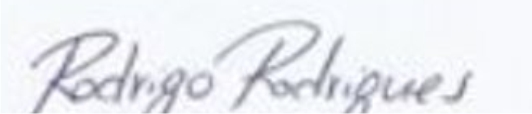 Rodrigo Rodrigues